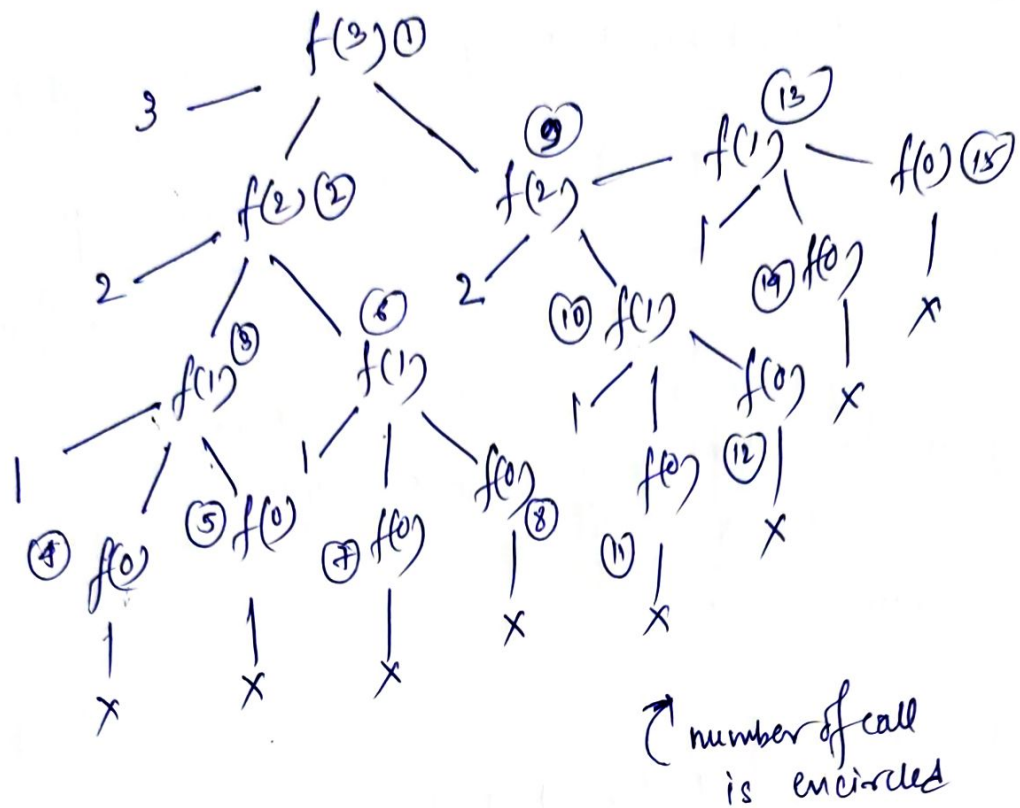 f(3) ①
3
⑨
⑬
f(2) ②
f(2)
f(1)
f(0) ⑮
2
2
1
⑭ f(0)
⑩ f(1)
x
f(1) ③
⑥
f(1)
f(0)
x
1
1
1
④ f(0)
⑤ f(0)
⑦ f(0)
f(0) ⑧
f(0)
⑫
⑪
x
x
x
x
x
x
number of call
is encircled